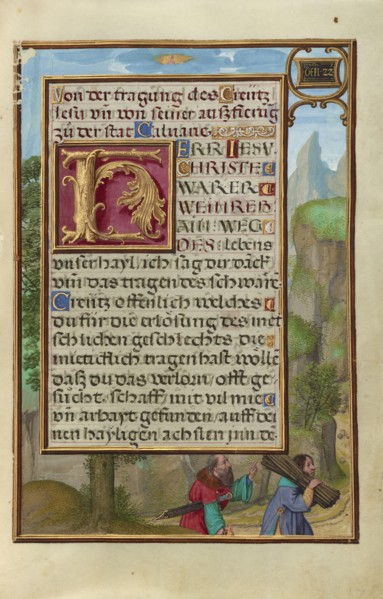 Von der tragung des Creütz
Iesu vn̄ von seiner auszfierūg
zů der stat Caluarie
HERR IESV
CHRISTE
WARER
WEINREB
AIN WEG
DES lebens
vnser hayl, ich sag dir danck
vm̄ das tragen des schwarē
Creütz offenlich welches
du für die erlösung des men
schlichen geschlechts die
mieticklich tragen hast wölle
dasz du das verlorn, offt ge,
sücht, schaff, mit vil mie
vn̄ arbayt gefunden, auff dei
nen hayligen achslen jnn de